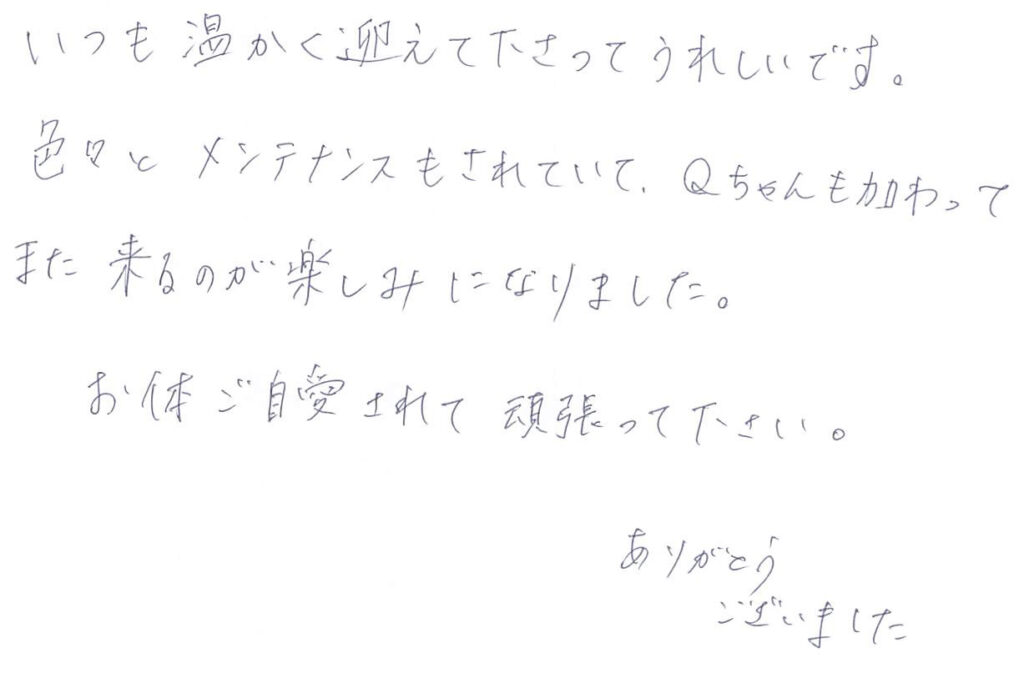 いつも温かく迎えて下さってうれしいです。
色々とメンテナンスもされていて、Qちゃんも加わって
また来るのが楽しみになりました。
お体ご自愛されて頑張って下さい。
ありがとう
ございました